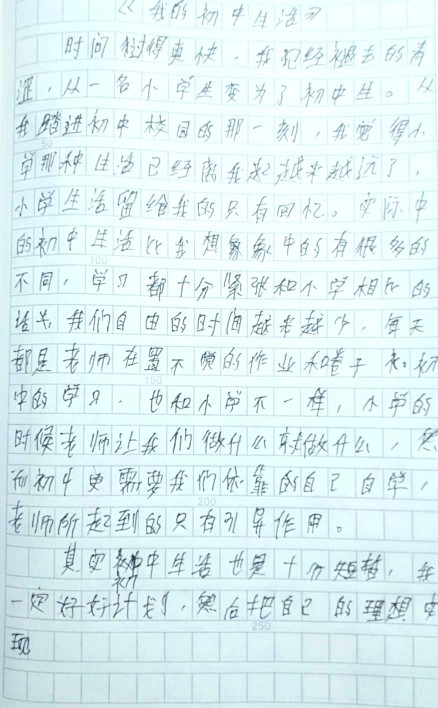 《我的初中生活》
时间过得真快，我已经褪去的青
涩，从一名小学生变为了初中生。从
我踏进初中校园的那一刻，我觉得小
学那种生活已经离我起越来越远了，
小学生活留给我的只有回忆。实际中
的初中生活比我想象象中的有很多的
不同，学习都十分紧张和小学相比的
话，我们自由的时间越来越少，每天
都是老师在置不完的作业和卷子来。初
中的学习，也和小学不一样，小学的
时候老师让我们做什么就做什么，然
而初中更需要我们依靠的自己自学，
老师所起到的只有引导作用。
其实初中生活也是十分短暂，我
一定好好计划，然后把自己的理想实
现
100
150
200
250